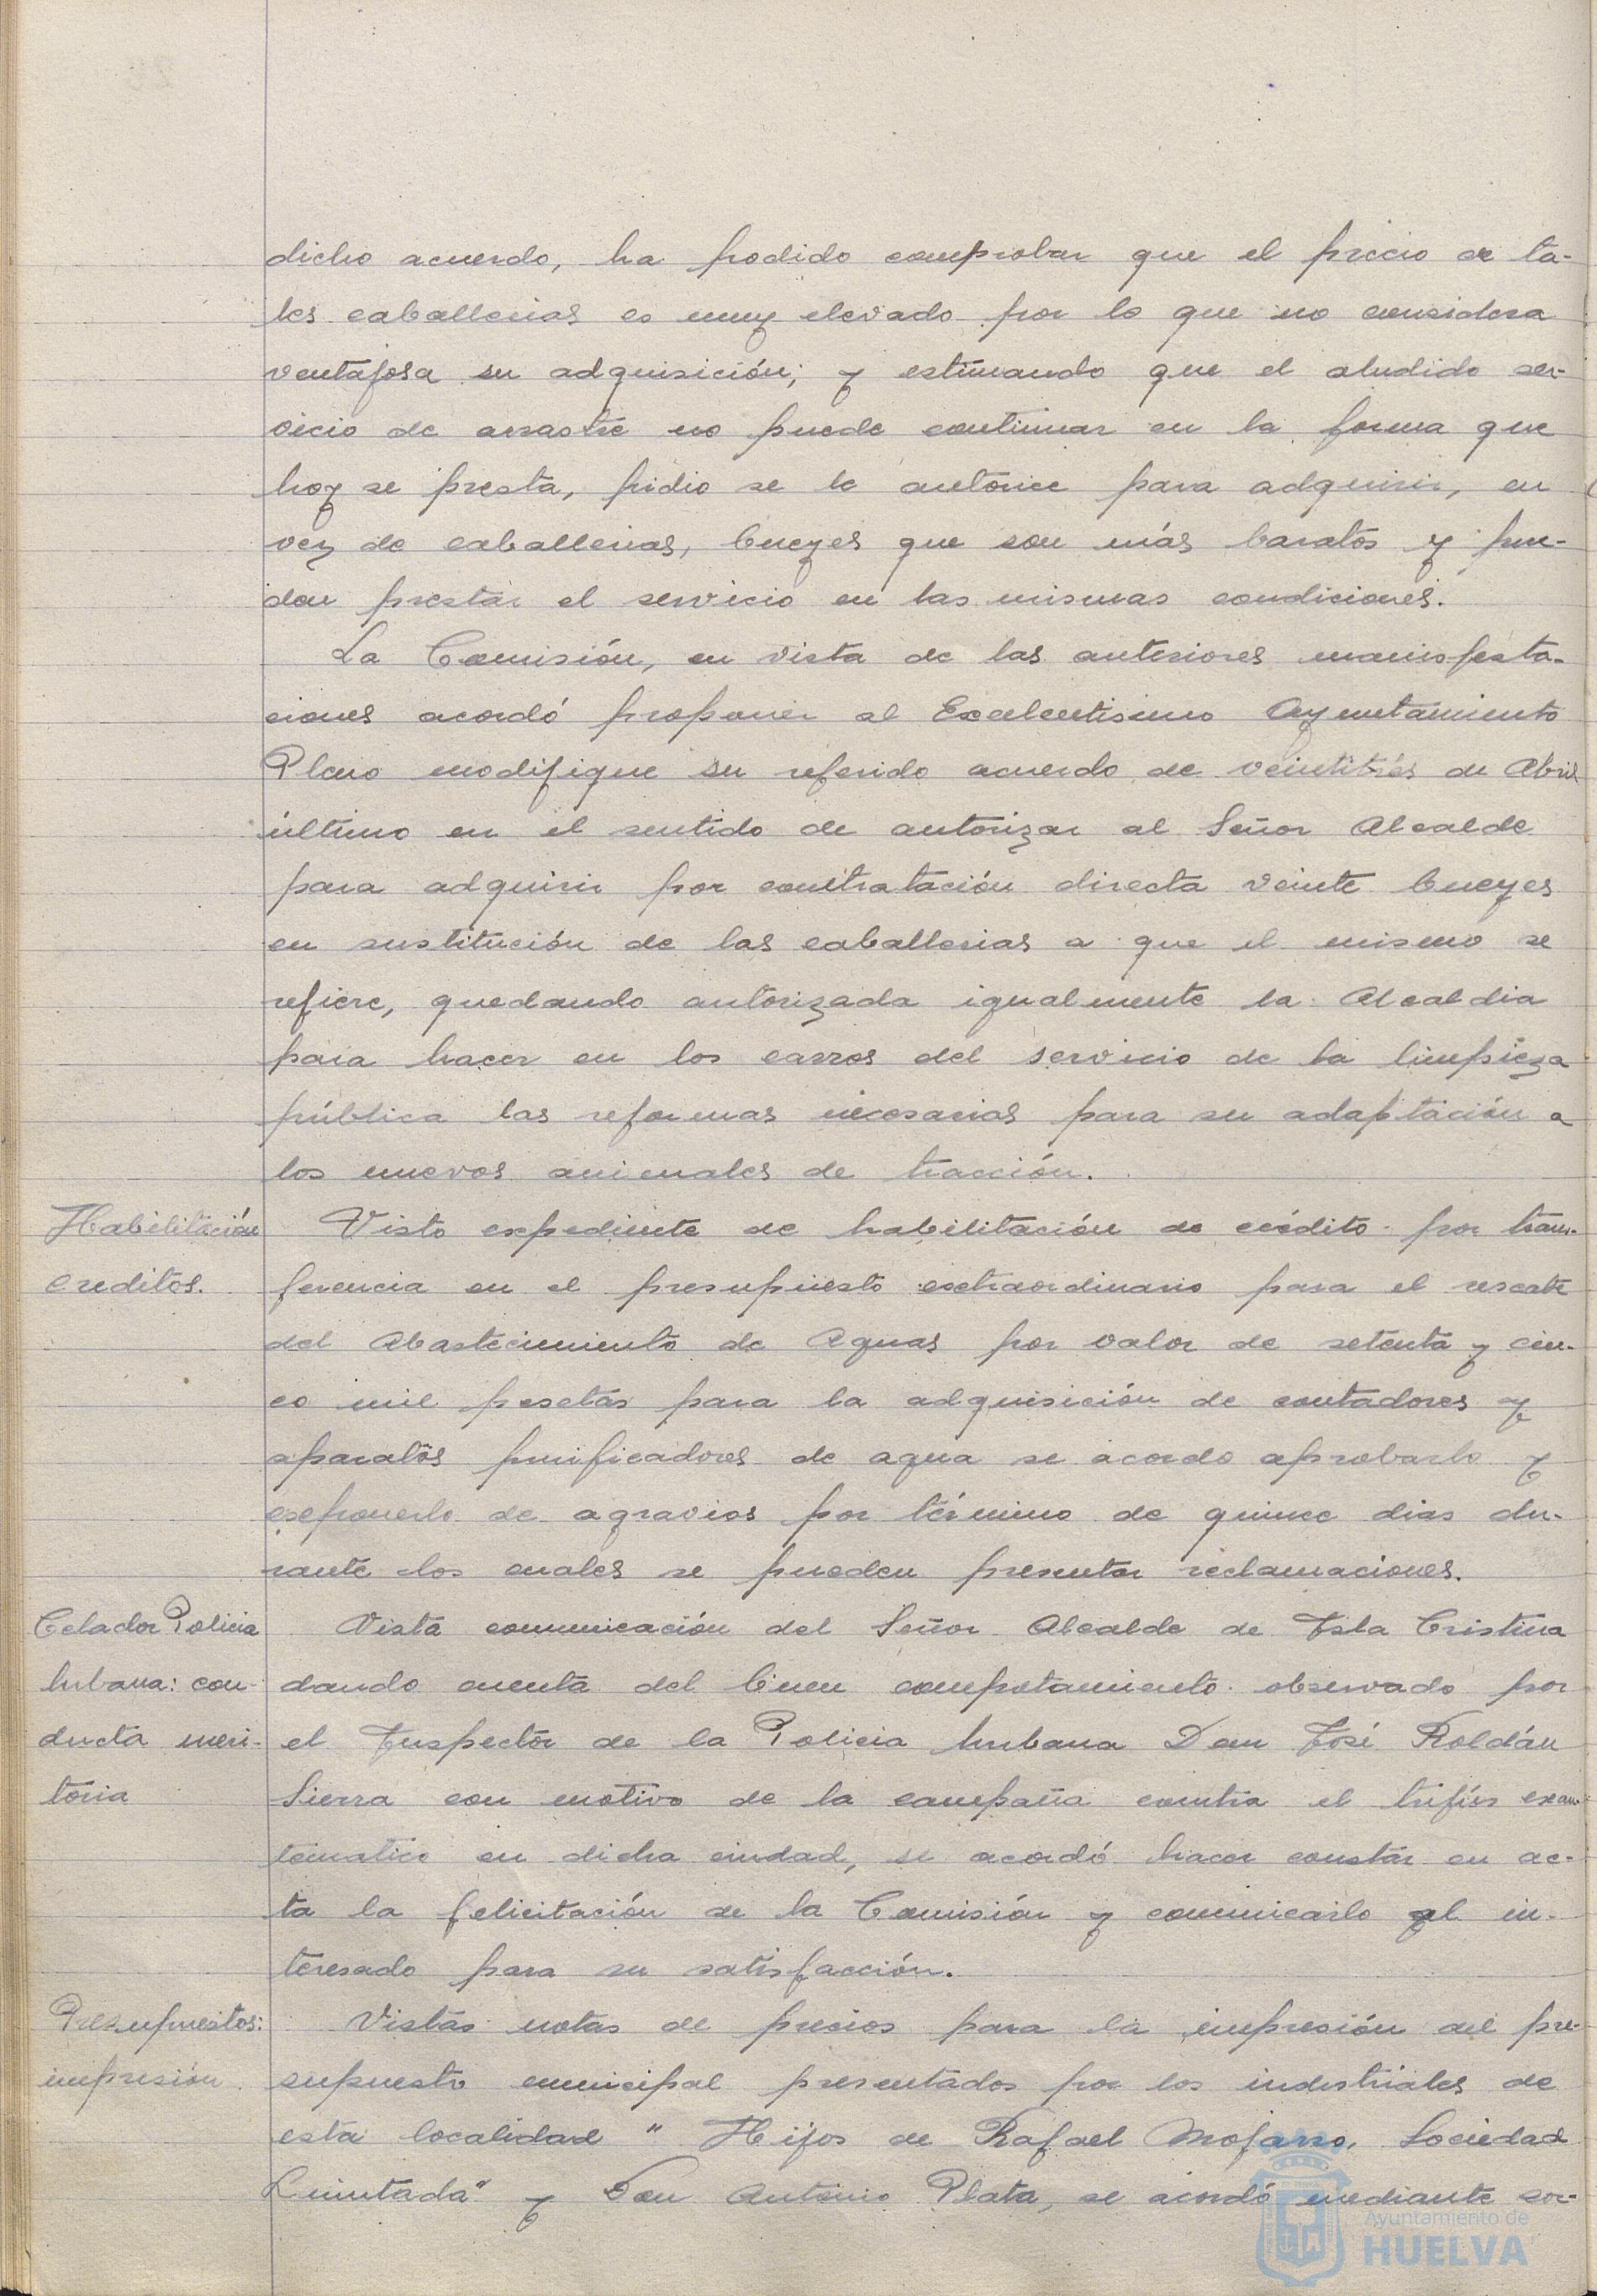 dicho acuerdo, ha podido comprobar que el precio de ta-
les caballerias es muy elevado por lo que no considera
ventajosa su adquisición; y estimando que el aludido ser-
vicio de arrastre no puede continuar en la forma que
hoy se presta, pidio se le autorice para adquirir, en
vez de caballerias, bueyes que son más baratos y pue-
den prestar el servicio en las mismas condiciones.
La Comisión, en vista de las anteriores manifesta-
ciones acordó proponer al Excelentisimo Ayuntamiento
Pleno modifique su referido acuerdo de veintitrés de Abril
último en el sentido de autorizar al Señor Alcalde
para adquirir por contratación directa veinte bueyes
en sustitución de las caballerias a que el mismo se
refiere, quedando autorizada igualmente la Alcaldia
para hacer en los carros del servicio de la limpieza
pública las reformas necesarias para su adaptación a
los nuevos animales de tracción.
Habilitación
creditos.
Visto expediente de habilitación de crédito por trans-
ferencia en el presupuesto extraordinario para el rescate
del Abastecimiento de Aguas por valor de setenta y cin-
co mil pesetas para la adquisición de contadores y
aparatos purificadores de agua se acordo aprobarlo y
exponerlo de agravios por término de quince dias du-
rante los cuales se pueden presentar reclamaciones.
Celador Policia
Urbana: con-
ducta meri-
toria
Vista comunicación del Señor Alcalde de Isla Cristina
dando cuenta del buen compotamiento observado por
el Inspector de la Policia Urbana Don José Roldán
Sierra con motivo de la campaña contra el tifús exan-
tematico en dicha ciudad, se acordó hacer constar en ac-
ta la felicitación de la Comisión y comunicarlo al in-
teresado para su satisfacción.
Presupuestos:
impresión
Vistas notas de precios para la impresión del pre-
supuesto municipal presentados por los industriales de
esta localidad " Hijos de Rafael Mojarro, Sociedad
Limitada" y Don Antonio Plata, se acordó mediante sor-
Ayuntamiento de
HUELVA